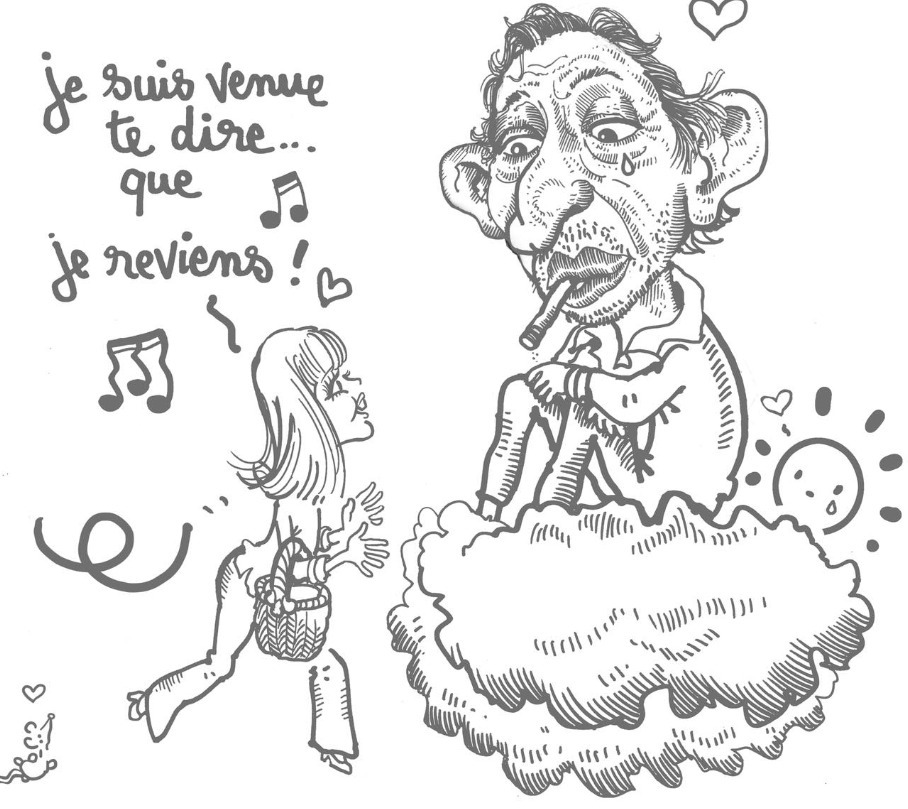 je suis venue
te dire...
que
je reviens !